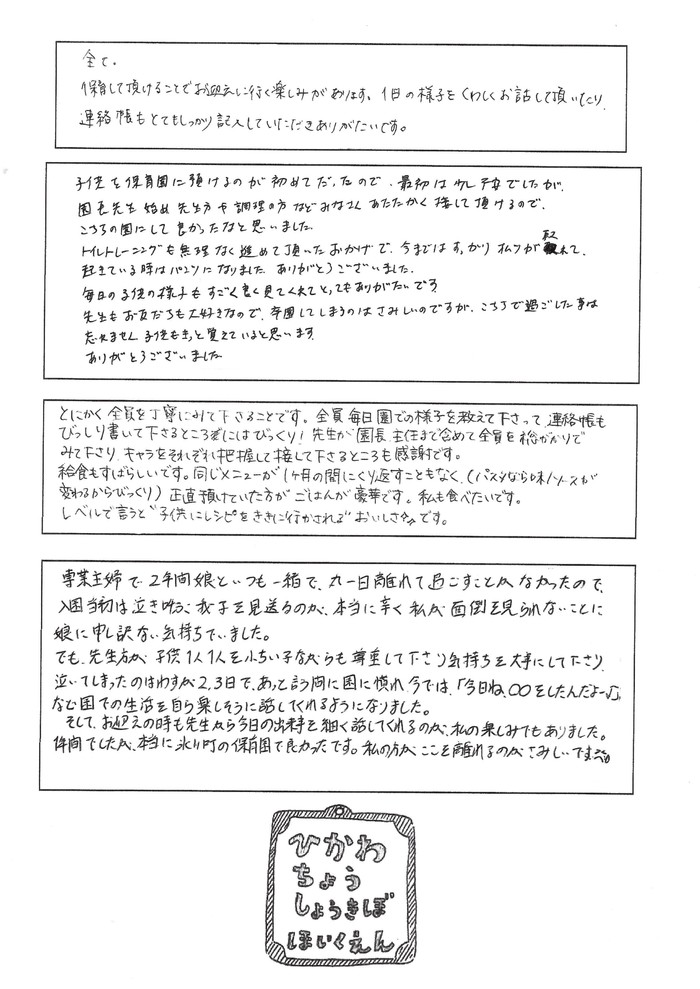 全て。
保育して頂けることでお迎えに行く楽しみがあります。1日の様子をくわしくお話して頂いたり、
連絡帳もとてもしっかり記入していただきありがたいです。
子供を保育園に預けるのが初めてだったので、最初は少し不安でしたが、
園長先生始め先生方や調理の方などみなさんあたたかく接して頂けるので、
こちらの園にして良かったなと思いました。
トイレトレーニングも無理なく進めて頂いたおかげで、今まではすっかりオムツが取れて、
起きている時はパンツになりました。ありがとうございました。
毎日の子供の様子もすごく良く見てくれてとってもありがたいです
先生もお友だちも大好きなので、卒園してしまうのはさみしいのですが、こちらで過ごした事は
忘れません 子供もきっと覚えていると思います。
ありがとうございました
とにかく全員を丁寧にみて下さることです。全員毎日園での様子を教えて下さって、連絡帳も
びっしり書いて下さるところにはびっくり!先生が園長、主任まで含めて全員を総がかりで
みて下さり、キャラをそれぞれ把握して接して下さるところも感謝です。
給食もすばらしいです。同じメニューが1ヶ月の間にくり返すこともなく、(パスタなら味/ソースが
変わるからびっくり)正直預けていた方がごはんが豪華です。私も食べたいです。
レベルで言うと"子供にレシピをききに行かされる"おいしさ です。
専業主婦で2年間娘といつも一緒で、丸一日離れて過ごすことがなかったので、
入園当初は泣き叫ぶ我が子を見送るのが、本当に辛く私が面倒を見られないことに
娘に申し訳ない気持ちでいました。
でも、先生方が子供1人1人を小ちい子ながらも尊重して下さり気持ちを大事にして下さり、
泣いてしまったのはわずか2,3日で、あっと言う間に園に慣れ、今では、「今日ね、○○をしたんだよー♪」
など園での生活を自ら楽しそうに話してくれるようになりました。
そして、お迎えの時も先生から今日の出来事を細く話してくれるのが、私の楽しみでもありました。
間でしたが、本当に氷川町の保育園で良かったです。私の方が、ここを離れるのがさみしいです
ひかわ
ちょう
しょうきぼ
ほいくえん